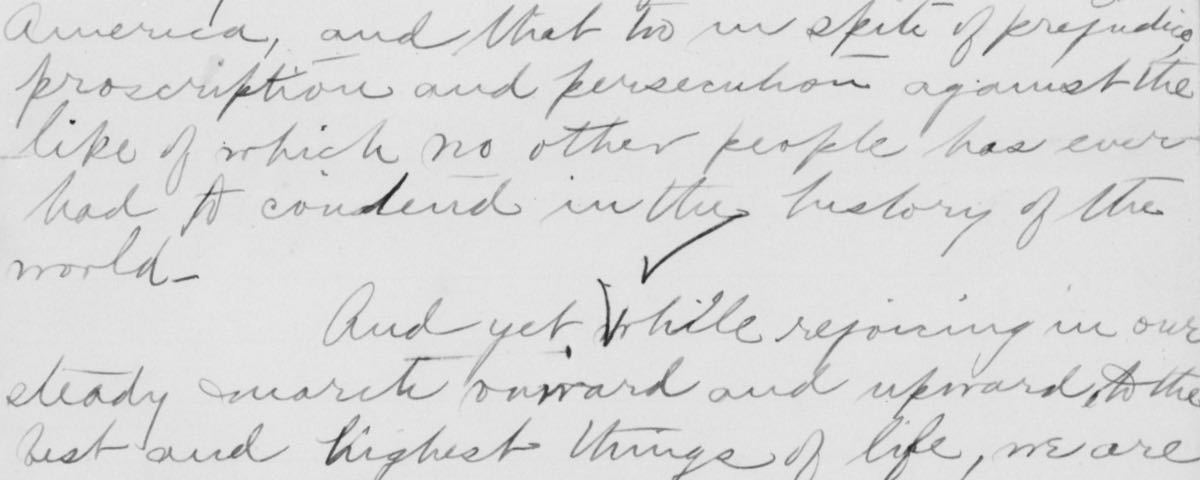 America, and that too in spite of prejudice,
proscription and persecution against the
like of which no other people has ever
had to condend in the history of the
world-
And yet, while rejoicing in our
steady march onward and upward, to the
best and highest things of life, we are